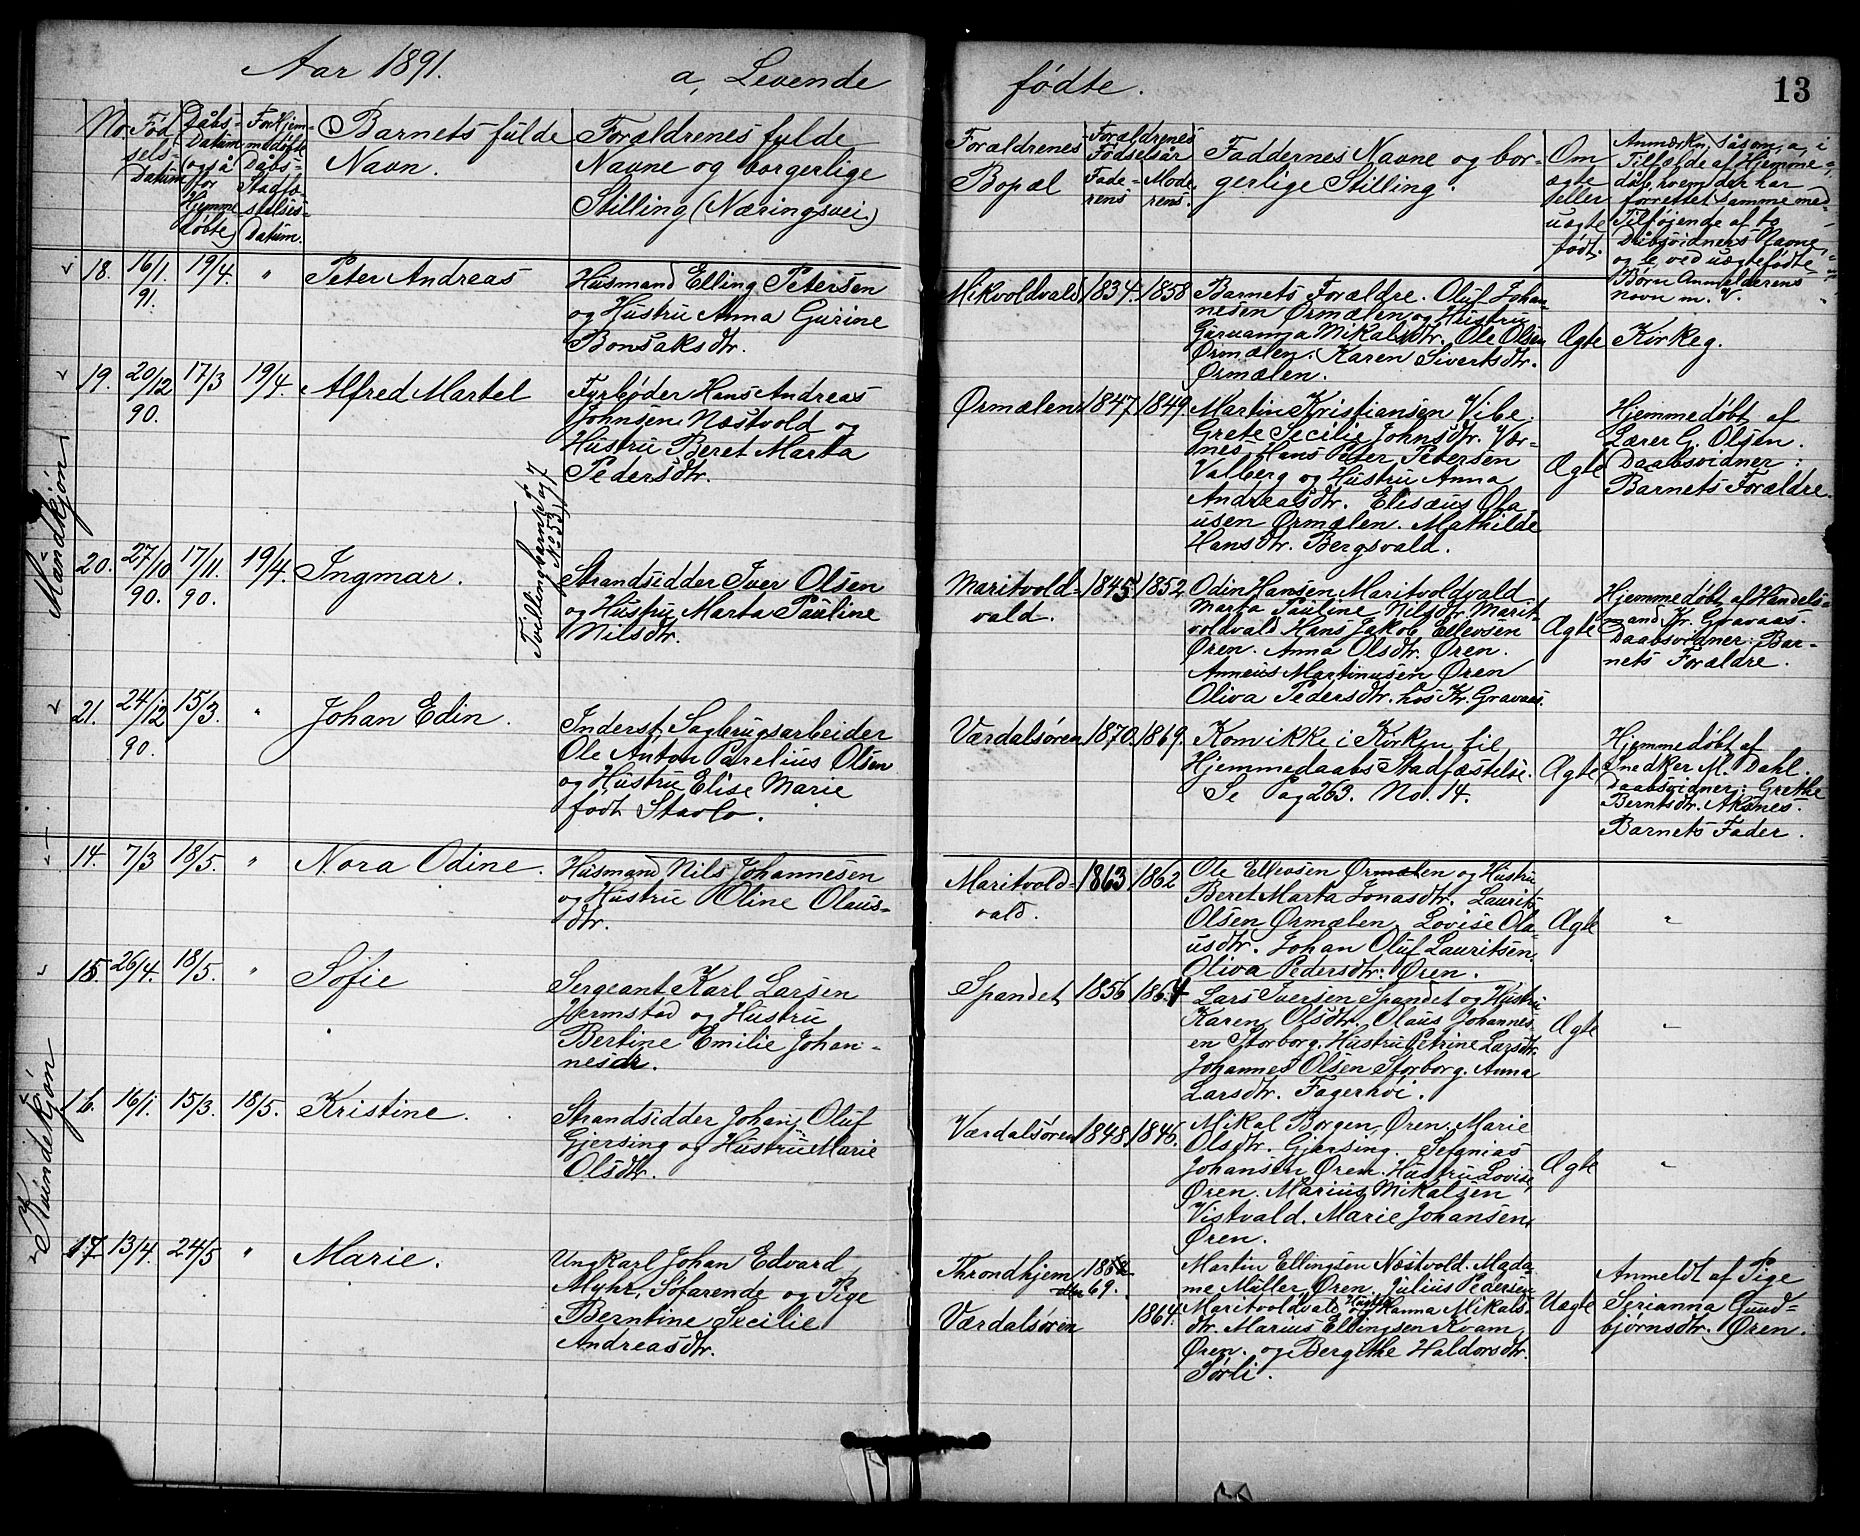 Aar 1891.
a, Levende
fødte.
13
No.
Fød
sels-
Datum
Dåbs-
Datum
(også
for
Hjemme
døbte)
For Hjem-
medøbte
Dåbs-
Stadfæ-
stelses-
Datum.
Barnets fulde
Navn.
Forældrenes fulde
Navne og borgerlige
Stilling (Næringsvei)
Forældrenes
Bopæl
Forældrenes
Fødselsår
Fade-
rens
Mode
rens.
Faddernes Navne og bor-
gerlige Stilling.
Om
ægte
eller
uægte
født.
Anmærkn. Såsom, a, i
Tilfælde af Hjemme-
dåb, hvem der har
forrettet samme med
Tilføiende af to
Dåbsvidners Navne,
og b, ved uægtefødte
Børn Anmelderens
navn m. v.
Mandkjøn
18.
16/1.
91.
19/4.
"
Peter Andreas
Husmand Elling Petersen
og Hustru Anna Gurine
Bonsaksdtr.
Mikvoldvald
1834.
1858
Barnets Forældre. Oluf Johan-
nesen Ørmælen og Hustru
Mikalsdtr. Ole Olsen
Ørmælen. Karen Sivertsdtr.
Ørmælen.
Ægte
Kirkeg.
19.
20/12
90.
17/3
19/4.
Alfred Martel
Fyrbøder Hans Andreas
Johnsen Næstvold og
Hustru Beret Marta
Pedersdtr.
Ørmælen
1847.
1849
Martin Kristiansen Vibe.
Grete Secilie Johnsdtr. Vær-
nes. Hans Peter Petersen
Valberg og Hustru Anna
Andreasdtr. Elisæus Ola
usen Ørmælen. Mathilde
Hansdtr. Bergsvald.
Ægte
Hjemmedøbt af
Lærer G. Olsen.
Daabsvidner:
Barnets Forældre.
20.
27/10
90.
17/11.
90.
19/4.
Ingmar.
Tvillingbarn se Pag 7
No 53.
Strandsidder Iver Olsen
og Hustru Marta Pauline
Nilsdtr.
Maritvold-
vald.
1845
1852
Odin Hansen Maritvoldvald
Marta Pauline Nilsdtr. Marit
voldvald Hans Jakob Ellevsen
Øren. Anna Olsdtr. Øren.
Anneus Martinusen Øren
Oliva Pedersdtr. hos Kr. Gravaas.
Ægte
Hjemmedøbt af Handels-
mand Kr. Gravaas.
Daabsvidner: Bar-
nets Forældre.
21.
24/12
90.
15/3.
"
Johan Edin.
Inderst, Sagbrugsarbeider
Ole Anton Parelius Olsen
og Hustru Elise Marie
født Stavlo.
Værdalsøren
1870.
1869.
Kom ikke i Kirken til
Hjemmedaabs Stadfæstelse.
Se Pag 263. No. 14.
Ægte
Hjemmedøbt af
Snedker M. Dahl.
Daabsvidner: Grethe
Berntsdtr. Aksnes.
Barnets Fader.
Kvindekjøn
14.
7/3
18/5.
"
Nora Odine.
Husmand Nils Johannesen
og Hustru Oline Olaus-
dtr.
Maritvold-
vald.
1863
1862
Ole Ellevsen Ørmælen og Hustru
Beret Marta Jonasdtr. Laurits
Olsen Ørmælen, Lovise Ola
usdtr. Johan Oluf Lauritsen.
Oliva Pedersdtr. Øren.
Ægte
"
15.
26/4.
18/5.
"
Sofie
Sergeant Karl Larsen
Hermstad og Hustru
Bertine Emilie Johan-
nesdtr.
Spandet
1856
1864
Lars Iversen Spandet og Hustru
Karen Olsdtr. Olaus Johannes-
en Storborg, Hustru Petrine Larsdtr.
Johannes Olsen Storborg. Anna
Larsdtr. Fagerhøi.
Ægte
"
16.
16/1.
15/3.
18/5.
Kristine.
Strandsidder Johan Oluf
Gjersing og Hustru Marie
Olsdtr.
Værdalsøren
1848.
1846.
Mikal Borgen, Øren. Marie
Olsdtr. Gjersing. Sefanias
Johansen Øren. Hustru Lovise,
Øren. Marius Mikalsen
Vistvald. Marie Johansen,
Øren.
Ægte
"
17
13/4.
24/5
"
Marie.
Ungkarl Johan Edvard
Myhr, Søfarende og Pige
Berntine Secilie
Andreasdtr.
Throndhjem
69.
Værdalsøren
1864.
Martin Ellingsen Næstvold. Mada-
me Müller, Øren. Julius Pedersen
Maritvoldvald og Hustru Hanna Mikals-
dtr. Marius Ellingsen Kvam,
Øren. og Bergithe Haldorsdtr.
Sørli.
Uægte
Anmeldt af Pige
Serianna Gund-
bjørnsdtr. Øren.